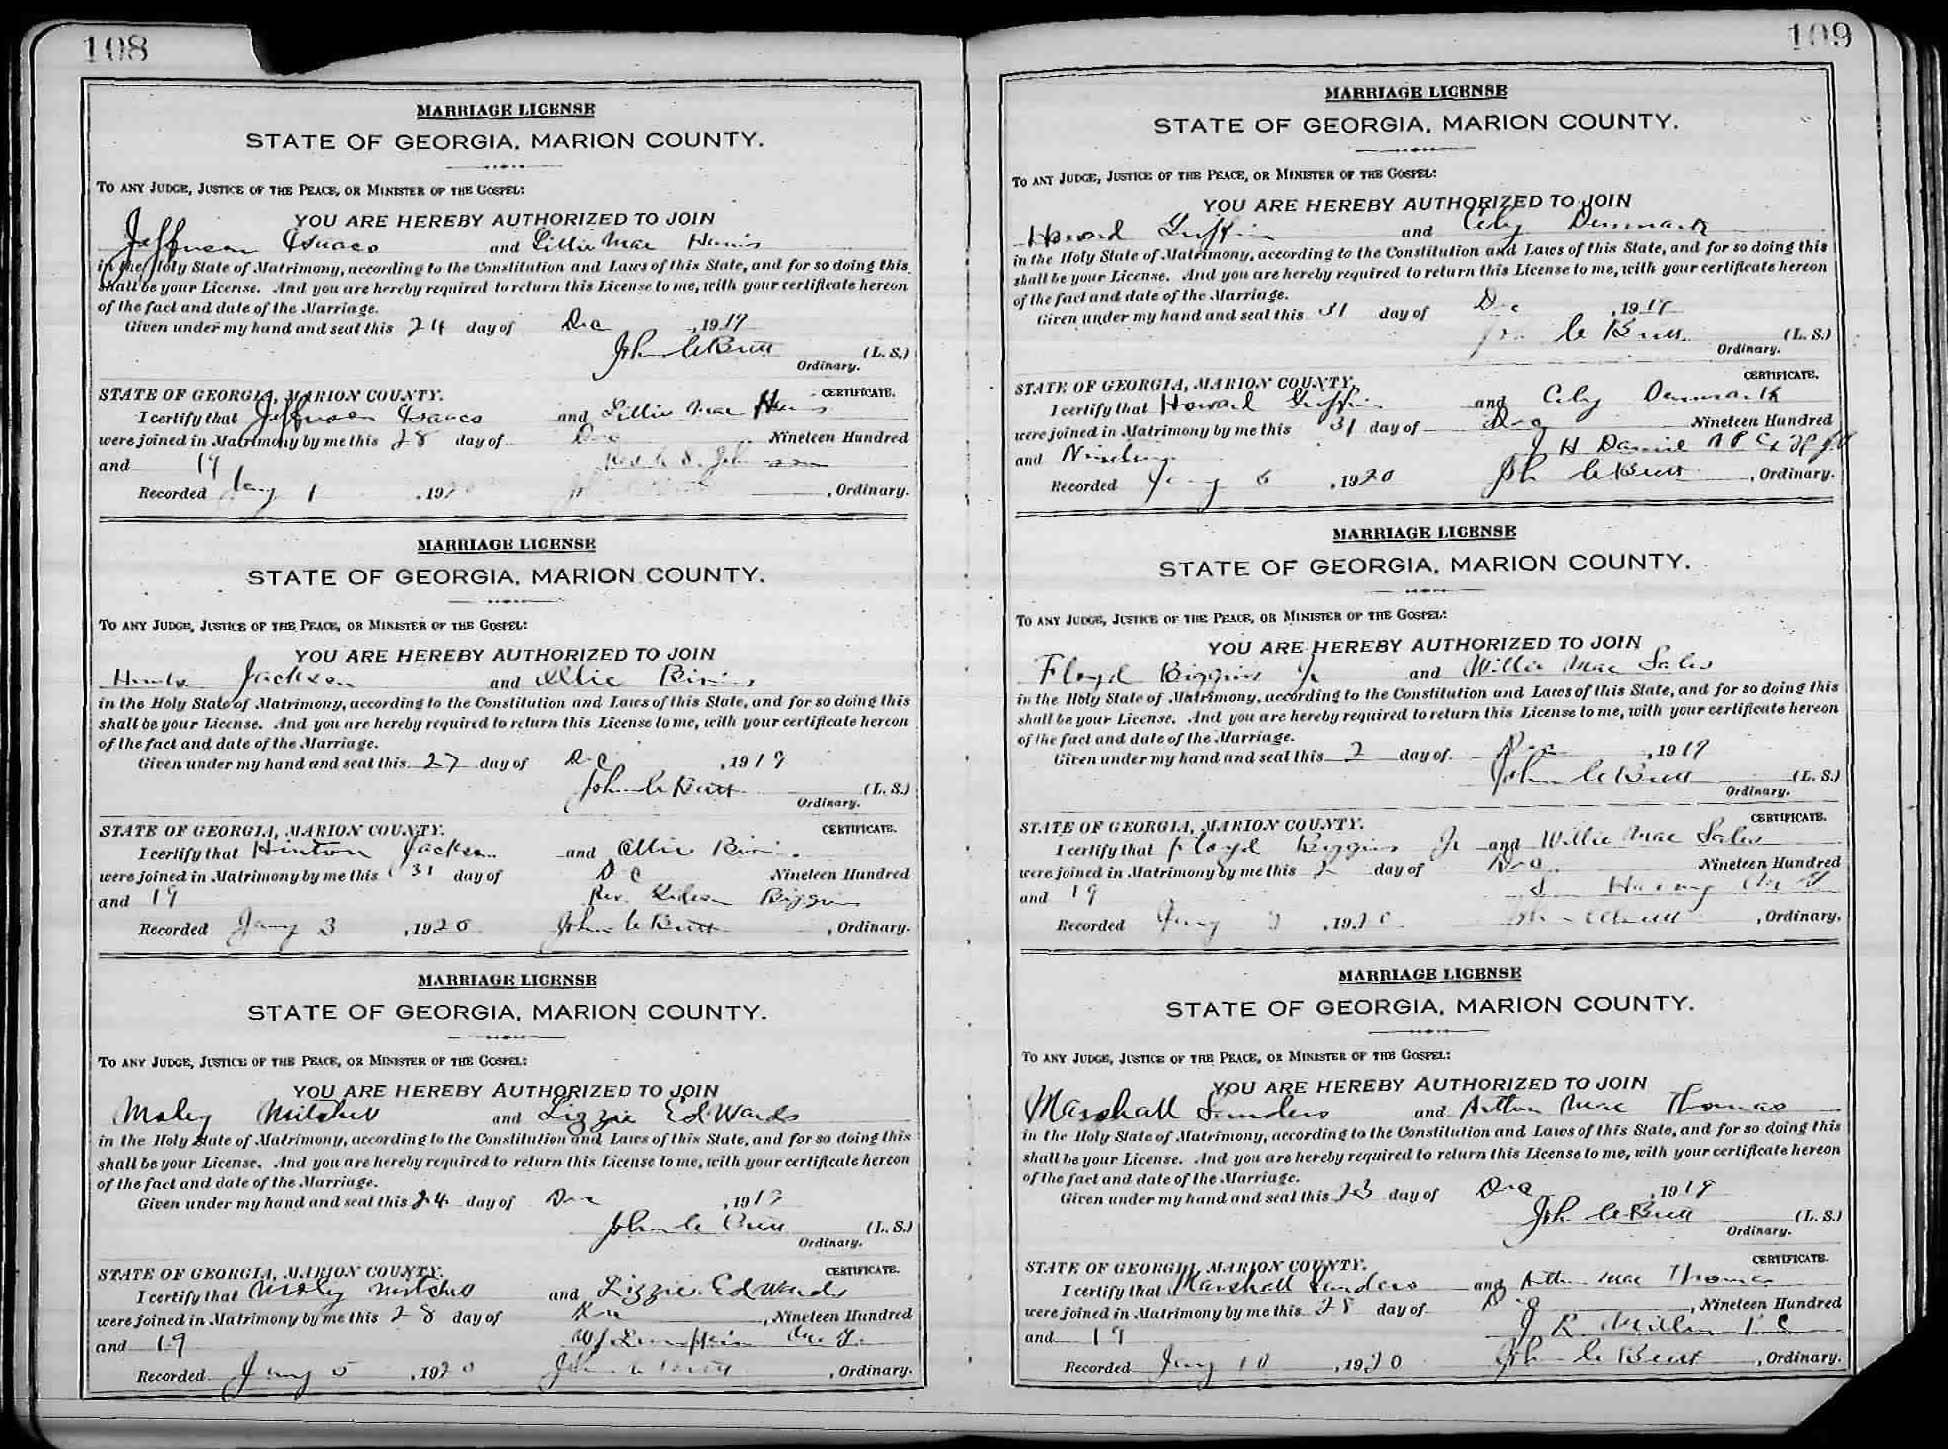 108
MARRIAGE LICENSE
STATE OF GEORGIA, MARION COUNTY.
TO ANY JUDGE, JUSTICE OF THE PEACE, OR MINISTER OF THE GOSPEL:
YOU ARE HEREBY AUTHORIZED TO JOIN
Jefferson Isaacs and Lillie Mae Harris
in the Holy State of Matrimony, according to the Constitution and Laws of this State, and for so doing this
shall be your License. And you are hereby required to return this License to me, with your certificate hereon
of the fact and date of the Marriage.
Given under my hand and seal this 24 day of Dec, 1919
John C Butt (L. S.)
Ordinary.
STATE OF GEORGIA, MARION COUNTY. CERTIFICATE.
I certify that Jefferson Isaacs and Lillie Mae
were joined in Matrimony by me this 28 day of Dec Nineteen Hundred
and 19
Recorded Jany 1, 1920, Ordinary.
MARRIAGE LICENSE
STATE OF GEORGIA, MARION COUNTY.
TO ANY JUDGE, JUSTICE OF THE PEACE, OR MINISTER OF THE GOSPEL:
YOU ARE HEREBY AUTHORIZED TO JOIN
Jackson and Ollie
in the Holy State of Matrimony, according to the Constitution and Laws of this State, and for so doing this
shall be your License. And you are hereby required to return this License to me, with your certificate hereon
of the fact and date of the Marriage.
Given under my hand and seal this 27 day of Dec, 1919
John C Butt (L. S.)
Ordinary.
STATE OF GEORGIA, MARION COUNTY. CERTIFICATE.
I certify that Hinton Jackson and Ollie
were joined in Matrimony by me this 31 day of Dc Nineteen Hundred
and 19 Rev. Biggins
Recorded Jany 3, 1920 John C Butt, Ordinary.
MARRIAGE LICENSE
STATE OF GEORGIA, MARION COUNTY.
TO ANY JUDGE, JUSTICE OF THE PEACE, OR MINISTER OF THE GOSPEL:
YOU ARE HEREBY AUTHORIZED TO JOIN
Mitchell and Lizzie Edwards
in the Holy State of Matrimony, according to the Constitution and Laws of this State, and for so doing this
shall be your License. And you are hereby required to return this License to me, with your certificate hereon
of the fact and date of the Marriage.
Given under my hand and seal this 24 day of Dec, 1919
John C Butt (L. S.)
Ordinary.
STATE OF GEORGIA, MARION COUNTY. CERTIFICATE.
I certify that Mitchell and Lizzie Edwards
were joined in Matrimony by me this 28 day of, Nineteen Hundred
and 19 W J Lumpkin M. G.
Recorded Jany 5, 1920 John C Butt, Ordinary.
109
MARRIAGE LICENSE
STATE OF GEORGIA, MARION COUNTY.
TO ANY JUDGE, JUSTICE OF THE PEACE, OR MINISTER OF THE GOSPEL:
YOU ARE HEREBY AUTHORIZED TO JOIN
Howard Griffin and Denmark
in the Holy State of Matrimony, according to the Constitution and Laws of this State, and for so doing this
shall be your License. And you are hereby required to return this License to me, with your certificate hereon
of the fact and date of the Marriage.
Given under my hand and seal this 31 day of Dec, 1919
Jno. C Butt (L. S.)
Ordinary.
STATE OF GEORGIA, MARION COUNTY. CERTIFICATE.
I certify that Howard Griffin and Denmark
were joined in Matrimony by me this 31 day of Dec Nineteen Hundred
and Nineteen J H Daniel
Recorded Jany 6, 1920 Joh C Butt, Ordinary.
MARRIAGE LICENSE
STATE OF GEORGIA, MARION COUNTY.
TO ANY JUDGE, JUSTICE OF THE PEACE, OR MINISTER OF THE GOSPEL:
YOU ARE HEREBY AUTHORIZED TO JOIN
Floyd Biggins Jr and Willie Mae Sales
in the Holy State of Matrimony, according to the Constitution and Laws of this State, and for so doing this
shall be your License. And you are hereby required to return this License to me, with your certificate hereon
of the fact and date of the Marriage.
Given under my hand and seal this 2 day of Dec, 1919
John C Butt (L. S.)
Ordinary.
STATE OF GEORGIA, MARION COUNTY. CERTIFICATE.
I certify that Floyd Biggins Jr and Willie Mae Sales
were joined in Matrimony by me this 2 day of Dec Nineteen Hundred
and 19
Recorded Jany, 1920 John C Butt, Ordinary.
MARRIAGE LICENSE
STATE OF GEORGIA, MARION COUNTY.
TO ANY JUDGE, JUSTICE OF THE PEACE, OR MINISTER OF THE GOSPEL:
YOU ARE HEREBY AUTHORIZED TO JOIN
Marshall Sanders and Arthur Mae Thomas
in the Holy State of Matrimony, according to the Constitution and Laws of this State, and for so doing this
shall be your License. And you are hereby required to return this License to me, with your certificate hereon
of the fact and date of the Marriage.
Given under my hand and seal this 23 day of Dec, 1919
Joh C Butt (L. S.)
Ordinary.
STATE OF GEORGIA, MARION COUNTY. CERTIFICATE.
I certify that Marshall Sanders and Arthur Mae Thomas
were joined in Matrimony by me this 28 day of, Nineteen Hundred
and 19 J R Miller
Recorded Jany 10, 1920 Joh C Butt, Ordinary.